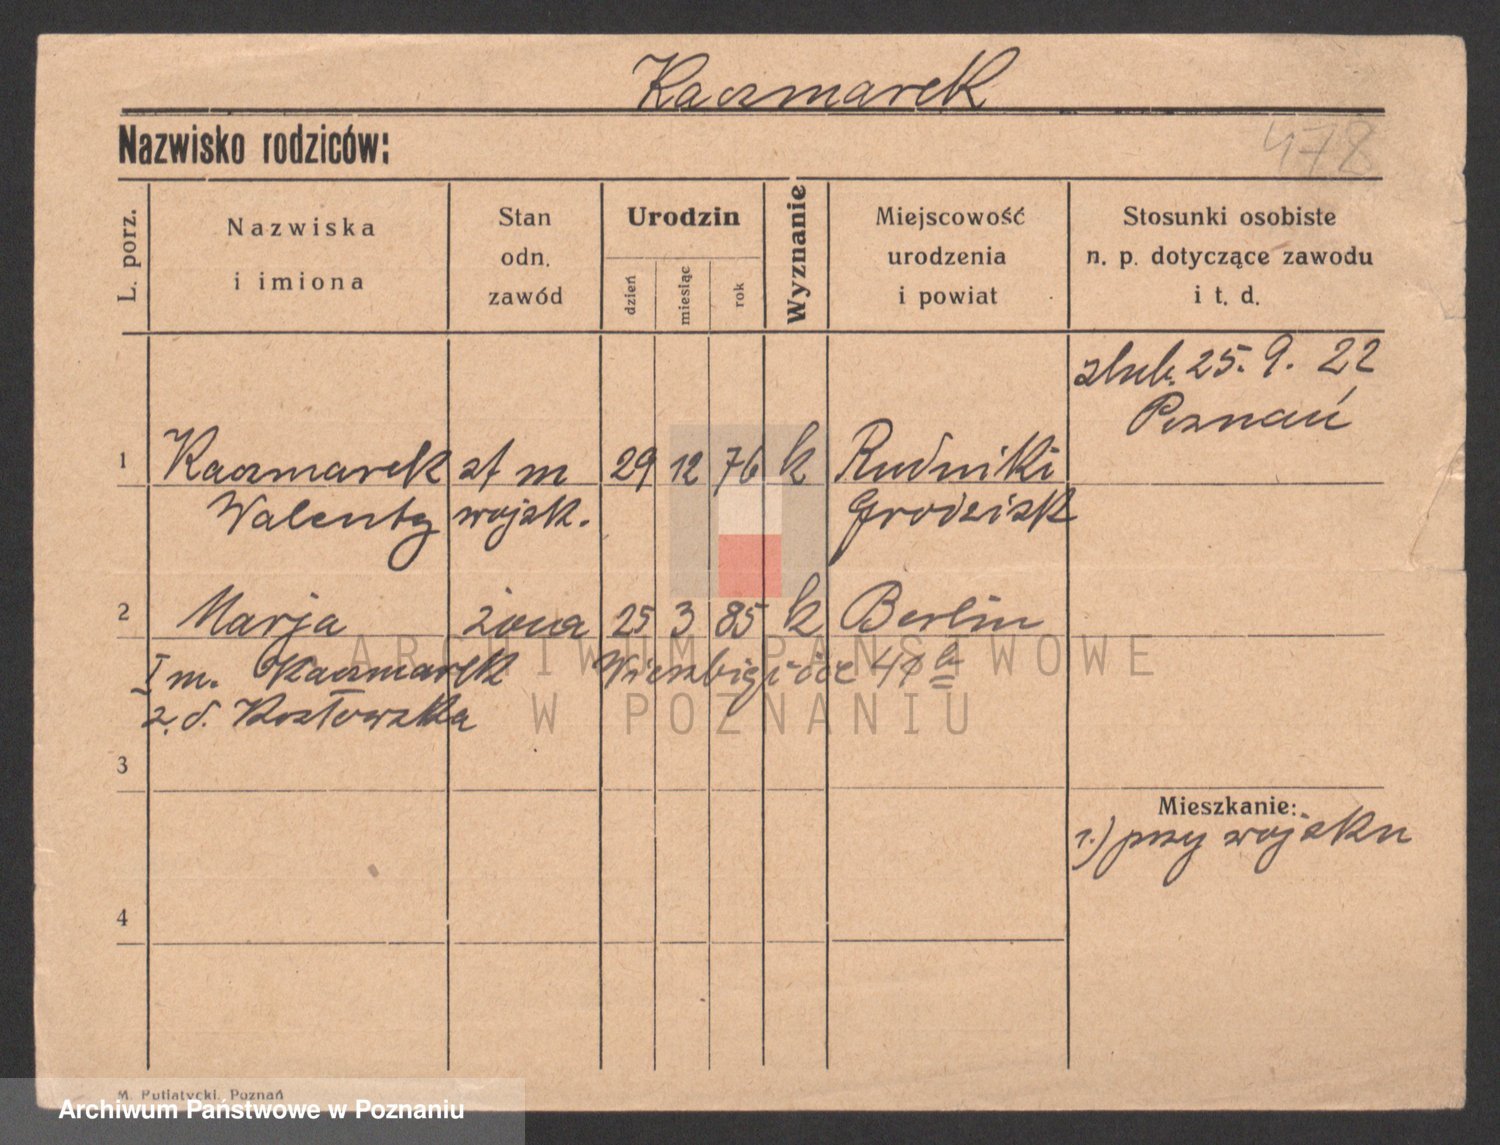 Kaczmarek
Nazwisko rodziców:
478
L. porz.
Nazwiska
i imiona
Stan
odn.
zawód
Urodzin
dzień
miesiąc
rok
Wyznanie
Miejscowość
urodzenia
i powiat
Stosunki osobiste
n. p. dotyczące zawodu
i t. d.
ślub. 25. 9. 22
Poznań
1 Kaczmarek st m 29 12 76 k Rudniki
Walenty wojsk. Grodzisk
2 Marja żona 25 3 85 k Berlin
I m. Kaczmarek
z d. Kozłowska
ARCHIWUM PAŃSTWOWE
W POZNANIU
3
Mieszkanie:
1.) przy wojsku
4
M. Putiatycki, Poznań
Archiwum Państwowe w Poznaniu